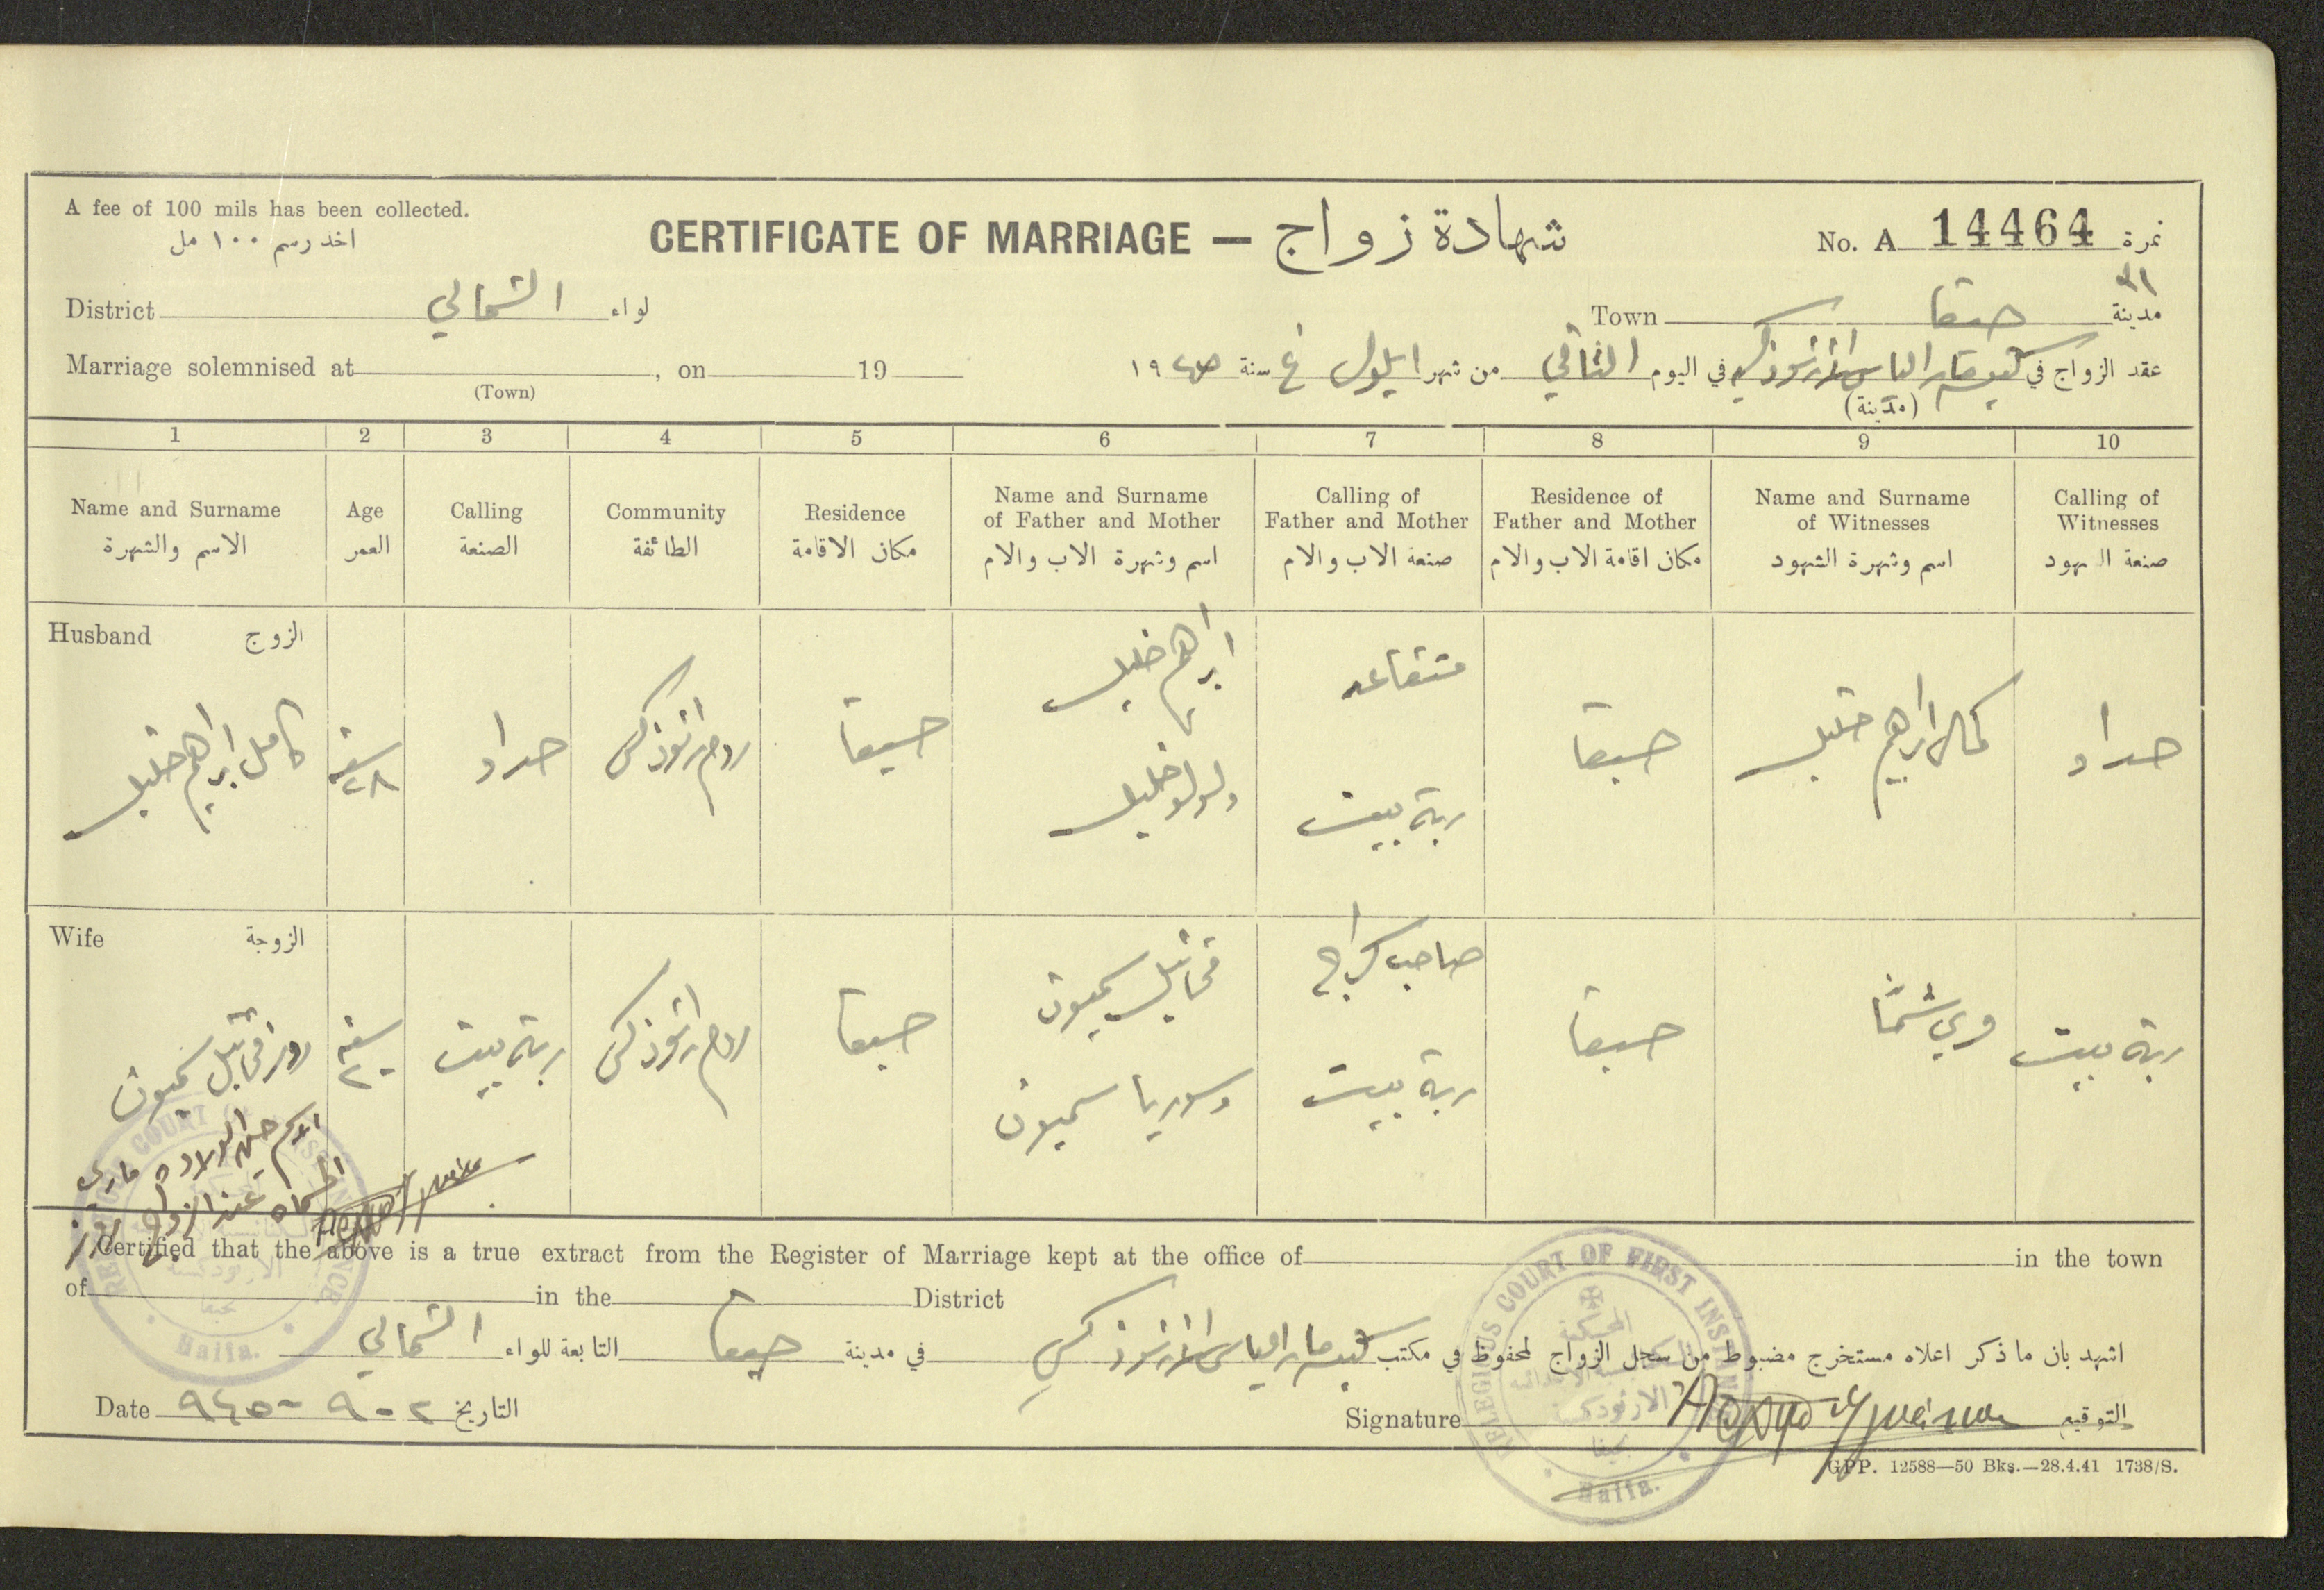 A fee of 100 mils has been collected.
اخذ رسم ١٠٠ مل
CERTIFICATE OF MARRIAGE — شهادة زواج
No. A 14464 نمرة
District الشمالي لواء
Town حيفا مدينة
Marriage solemnised at , on 19
(Town)
عقد الزواج في كنيسة مار الياس الارثوذكسية في اليوم الثاني من شهر ايلول سنة ١٩٤٥
(مدينة)
1 2 3 4 5 6 7 8 9 10
Name and Surname
الاسم والشهرة
Age
العمر
Calling
الصنعة
Community
الطائفة
Residence
مكان الاقامة
Name and Surname
of Father and Mother
اسم وشهرة الاب والام
Calling of
Father and Mother
صنعة الاب والام
Residence of
Father and Mother
مكان اقامة الاب والام
Name and Surname
of Witnesses
اسم وشهرة الشهود
Calling of
Witnesses
صنعة الشهود
Husband الزوج
كامل ابراهيم خليل
سنة
٢٨
حداد
روم ارثوذكس
حيفا
ابراهيم خليل
ولولو خليل
متقاعد
ربة بيت
حيفا
كمال ابراهيم خليل
حداد
Wife الزوجة
روز مخائيل سمعون
سنة
٢٠
ربة بيت
روم ارثوذكس
حيفا
مخائيل سمعون
وسوريا سمعون
صاحب كراج
ربة بيت
حيفا
ربة بيت
الاسم حين الولادة ماري
عند الزواج روز
Certified that the above is a true extract from the Register of Marriage kept at the office of in the town
of in the District
اشهد بان ما ذكر اعلاه مستخرج مضبوط من سجل الزواج المحفوظ في مكتب كنيسة مار الياس الارثوذكسي في مدينة حيفا التابعة للواء الشمالي
Date ٢-٩-٩٤٥ التاريخ
Signature التوقيع
RELEGIOUS COURT OF FIRST INSTANCE
المحكمة
الارثوذكسية
بحيفا
Haifa.
GPP. 12588—50 Bks.—28.4.41 1738/S.